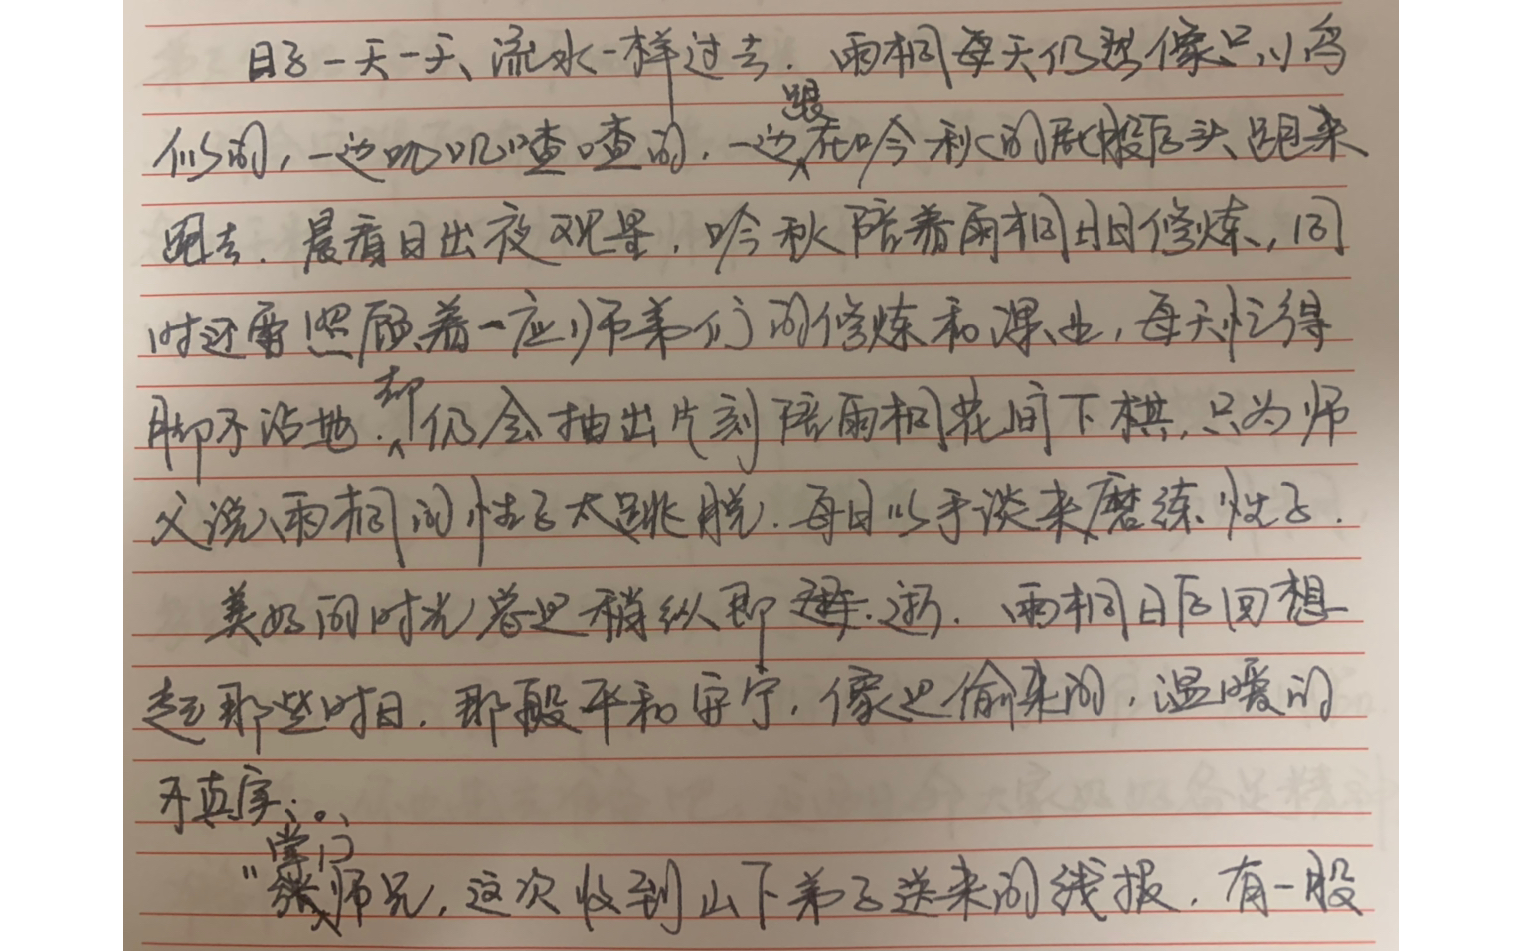 日子一天一天、流水一样过去.雨桐每天仍然像只小鸟
似的,一边叽叽喳喳的,一边跟在吟秋的屁股后头跑来
跑去.晨看日出夜观星,吟秋陪着雨桐日日修炼,同
时还需照顾着一应师弟们的修炼和课业,每天忙得
脚不沾地.却仍会抽出片刻陪雨桐花间下棋,只为师
父说,雨桐的性子太跳脱.每日以手谈来磨练性子.
美好的时光总是稍纵即逝.雨桐日后回想
起那些时日,那般平和安宁,像是偷来的,温暖的
不真实。
"掌门师兄,这次收到山下弟子送来的线报.有一股